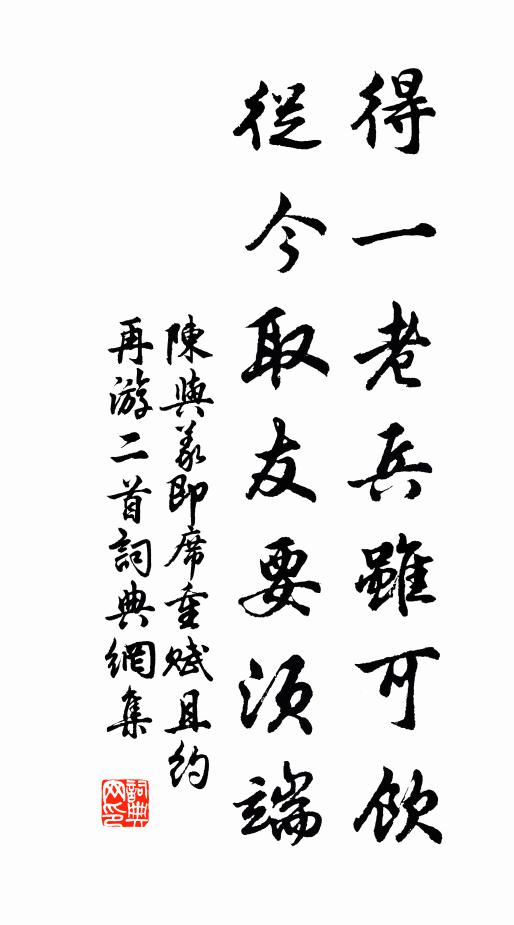 得一老兵雖可飲
從今取友要須端
陳與義即席重賦且約
再游二首詞典網集
詞典
网印